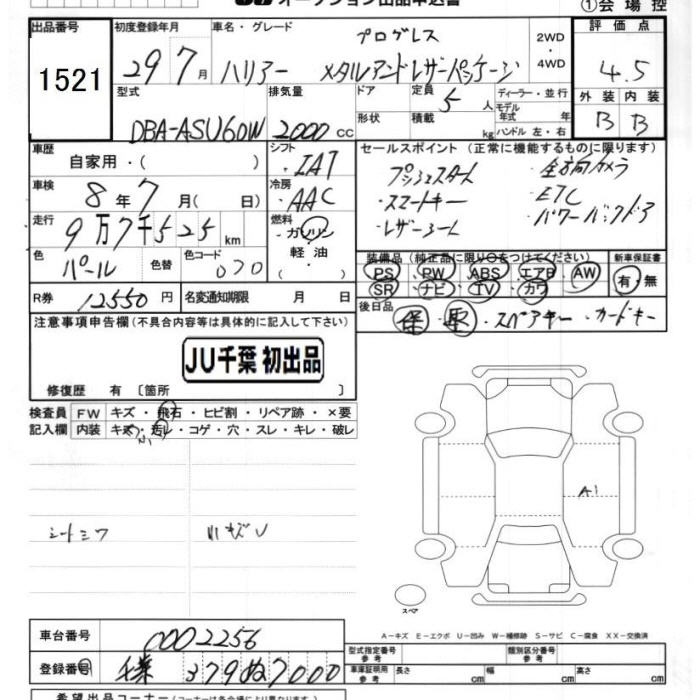 オークション出品申込書
①会場控
出品番号
初度登録年月
車名・グレード
プログレス
2WD
・
4WD
評価点
1521
29年7月
ハリアー メタルアンドレザーパッケージ
4.5
型式
排気量
ドア
定員
5人
ディーラー・並行
モデル年式 年
外装 内装
DBA-ASU60W
2000cc
形状
積載
kg
ハンドル 左・右
B B
車歴
自家用・(
)
シフト
IAT
セールスポイント (正常に機能するものに限ります)
プッシュスタート
・全方向カメラ
・スマートキー
・ETC
・レザーシート
・パワーバックドア
車検
8年7月( 日)
冷房
AAC
走行
9万7千525km
燃料
・ガソリン
軽油
・( )
色
パール
色替
色コード
070
装備品 (純正品に限り○をつけてください)
新車保証書
PS PW ABS エアB AW
有・無
SR ナビ TV カワ
R券
12550円
名変通知期限 月 日
後日品
保・取・スペアキー・カードキー
注意事項申告欄(不具合内容等は具体的に記入して下さい)
JU千葉 初出品
修復歴 有 〔箇所 〕
検査員記入欄
FW
キズ・飛石・ヒビ割・リペア跡・×要
内装
キズ・汚レ・コゲ・穴・スレ・キレ・破レ
A1
シートシワ
小キズU
スペア
A-キズ E-エクボ U-凹み W-補修跡 S-サビ C-腐食 XX-交換済
車台番号
0002256
型式指定番号
参考
類別区分番号
参考
登録番号
千葉 379 ぬ 7000
車庫証明用
参考
長さ cm
幅 cm
高さ cm
希望出品コーナー(コーナーは各会場により異なります)